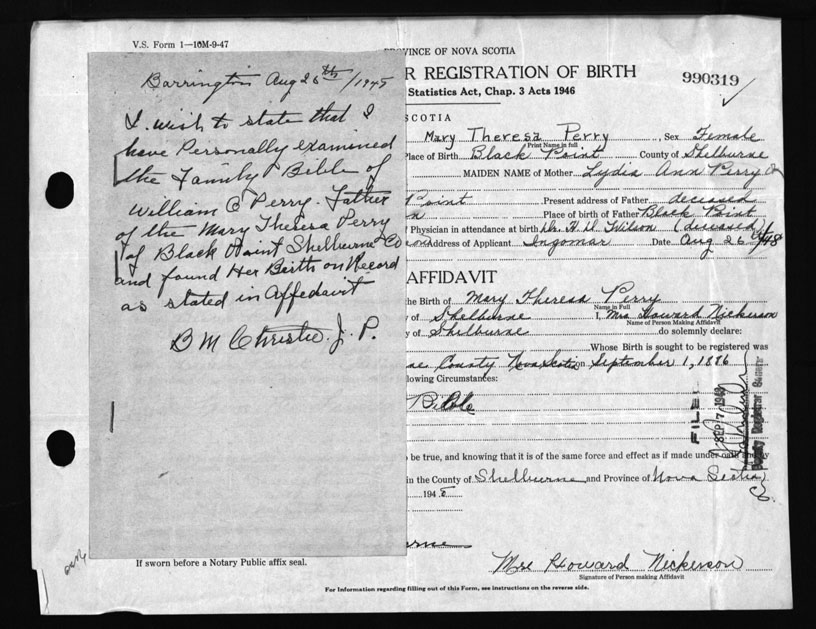 V.S. Form 1—10M-9-47
PROVINCE OF NOVA SCOTIA
R REGISTRATION OF BIRTH
990319
Statistics Act, Chap. 3 Acts 1946
SCOTIA
Mary Theresa Perry Sex Female
Print Name in full
Place of Birth Black Point County of Shelburne
MAIDEN NAME of Mother Lydia Ann Perry
Point Present address of Father deceased
Place of birth of Father Black Point
Physician in attendance at birth Dr. H. D. Wilson (deceased)
Address of Applicant Ingomar Date Aug 26 /48
AFFIDAVIT
the Birth of Mary Theresa Perry
Name in Full
y of Shelburne I, Mrs Howard Nickerson
Name of Person Making Affidavit
y of Shelburne do solemnly declare:
Whose Birth is sought to be registered was
ne County Nova Scotia on September 1, 1886
lowing Circumstances:
Bible
be true, and knowing that it is of the same force and effect as if made under oath and by
in the County of Shelburne and Province of Nova Scotia
194
rne
Mrs Howard Nickerson
Signature of Person making Affidavit
If sworn before a Notary Public affix seal.
For Information regarding filling out of this Form, see instructions on the reverse side.
FILED
SEP 7 1948
Deputy Registrar General
Barrington Aug 26th/1948
I. wish to state that I
have Personally examined
the Family Bible of
William C Perry. Father
of the Mary Theresa Perry
of Black Point Shelburne Co
and found Her Birth on Record
as stated in Affedavit
B M Christie. J. P.